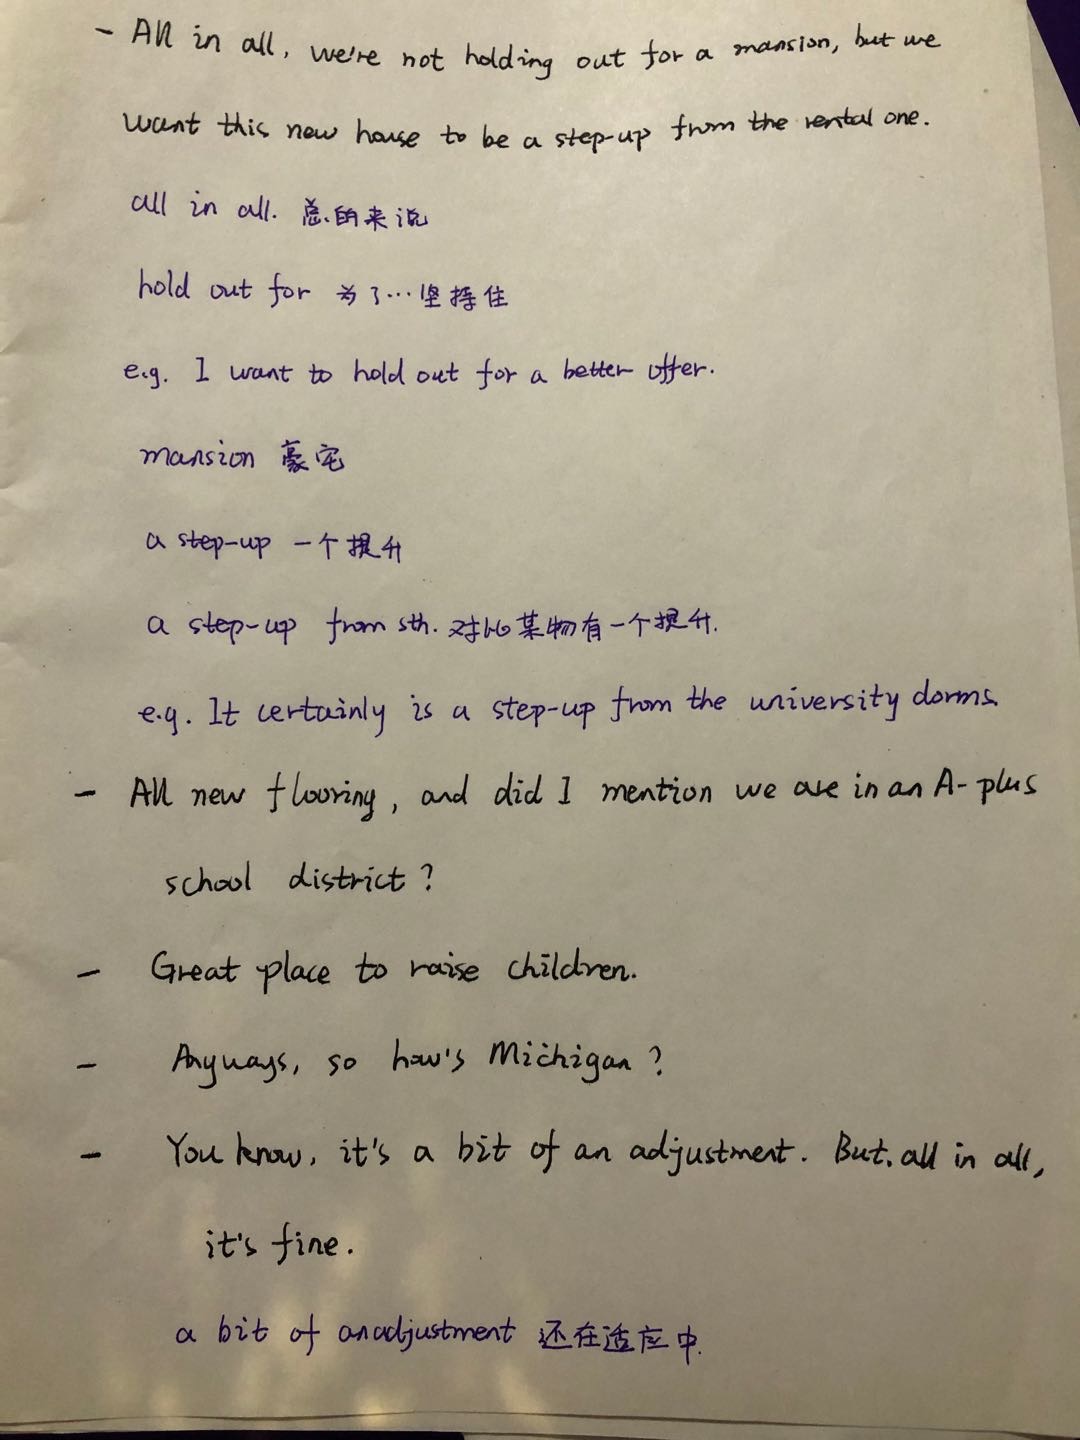 - All in all, we're not holding out for a mansion, but we
want this new house to be a step-up from the rental one.
all in all. 总的来说
hold out for 为了…坚持住
e.g. I want to hold out for a better offer.
mansion 豪宅
a step-up 一个提升
a step-up from sth. 对比某物有一个提升.
e.g. It certainly is a step-up from the university dorms.
- All new flooring, and did I mention we are in an A-plus
school district?
- Great place to raise children.
- Anyways, so how's Michigan?
- You know, it's a bit of an adjustment. But. all in all,
it's fine.
a bit of an adjustment 还在适应中.